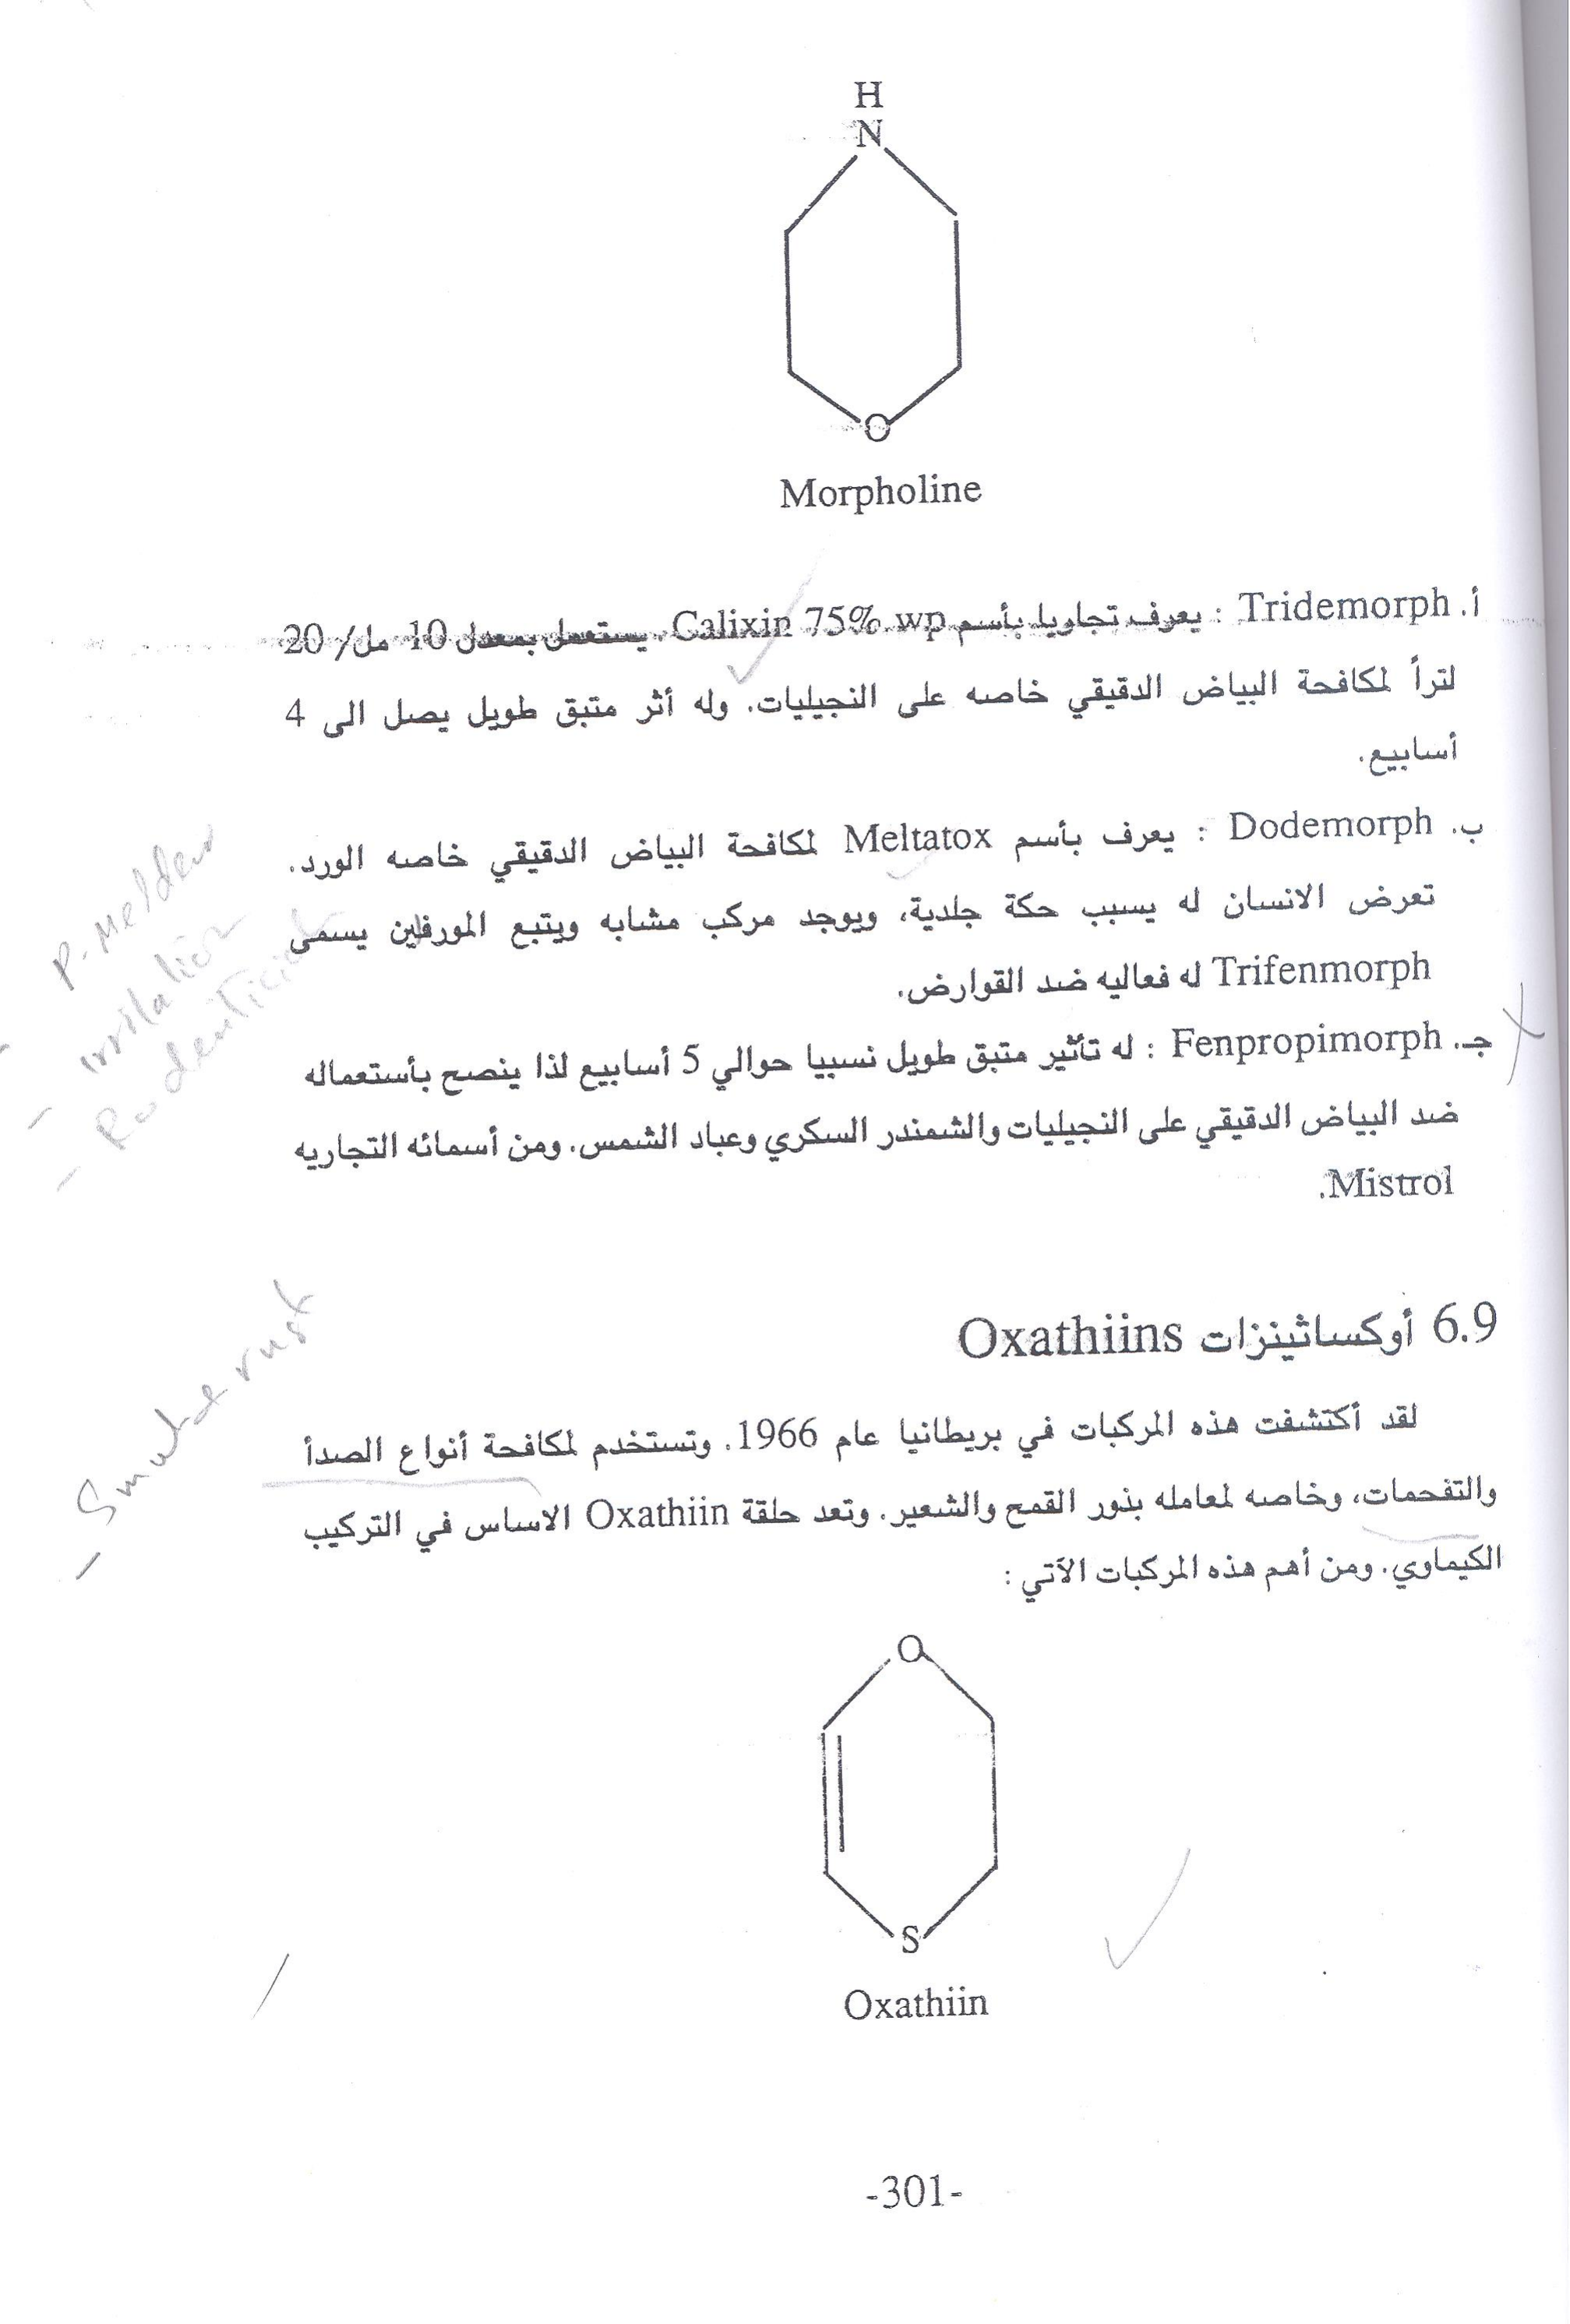 H
N
O
Morpholine
أ. Tridemorph : يعرف تجاويا بأسم Calixin 75% wp. يستعمل بمعدل 10 مل/ 20
لترأ لمكافحة البياض الدقيقي خاصه على النجيليات. وله أثر متبق طويل يصل الى 4
أسابيع.
ب. Dodemorph : يعرف بأسم Meltatox لمكافحة البياض الدقيقي خاصه الورد.
تعرض الانسان له يسبب حكة جلدية، ويوجد مركب مشابه ويتبع المورفلين يسمى
Trifenmorph له فعاليه ضد القوارض.
جـ. Fenpropimorph : له تأثير متبق طويل نسبيا حوالي 5 أسابيع لذا ينصح بأستعماله
ضد البياض الدقيقي على النجيليات والشمندر السكري وعباد الشمس. ومن أسمائه التجاريه
Mistrol.
- P. Meldew
- irritation
- Rodenticide
6.9 أوكساثينزات Oxathiins
لقد أكتشفت هذه المركبات في بريطانيا عام 1966. وتستخدم لمكافحة أنواع الصدأ
والتفحمات، وخاصه لمعامله بذور القمح والشعير. وتعد حلقة Oxathiin الاساس في التركيب
الكيماوي. ومن أهم هذه المركبات الآتي :
- Smut & rust
O
S
Oxathiin
-301-